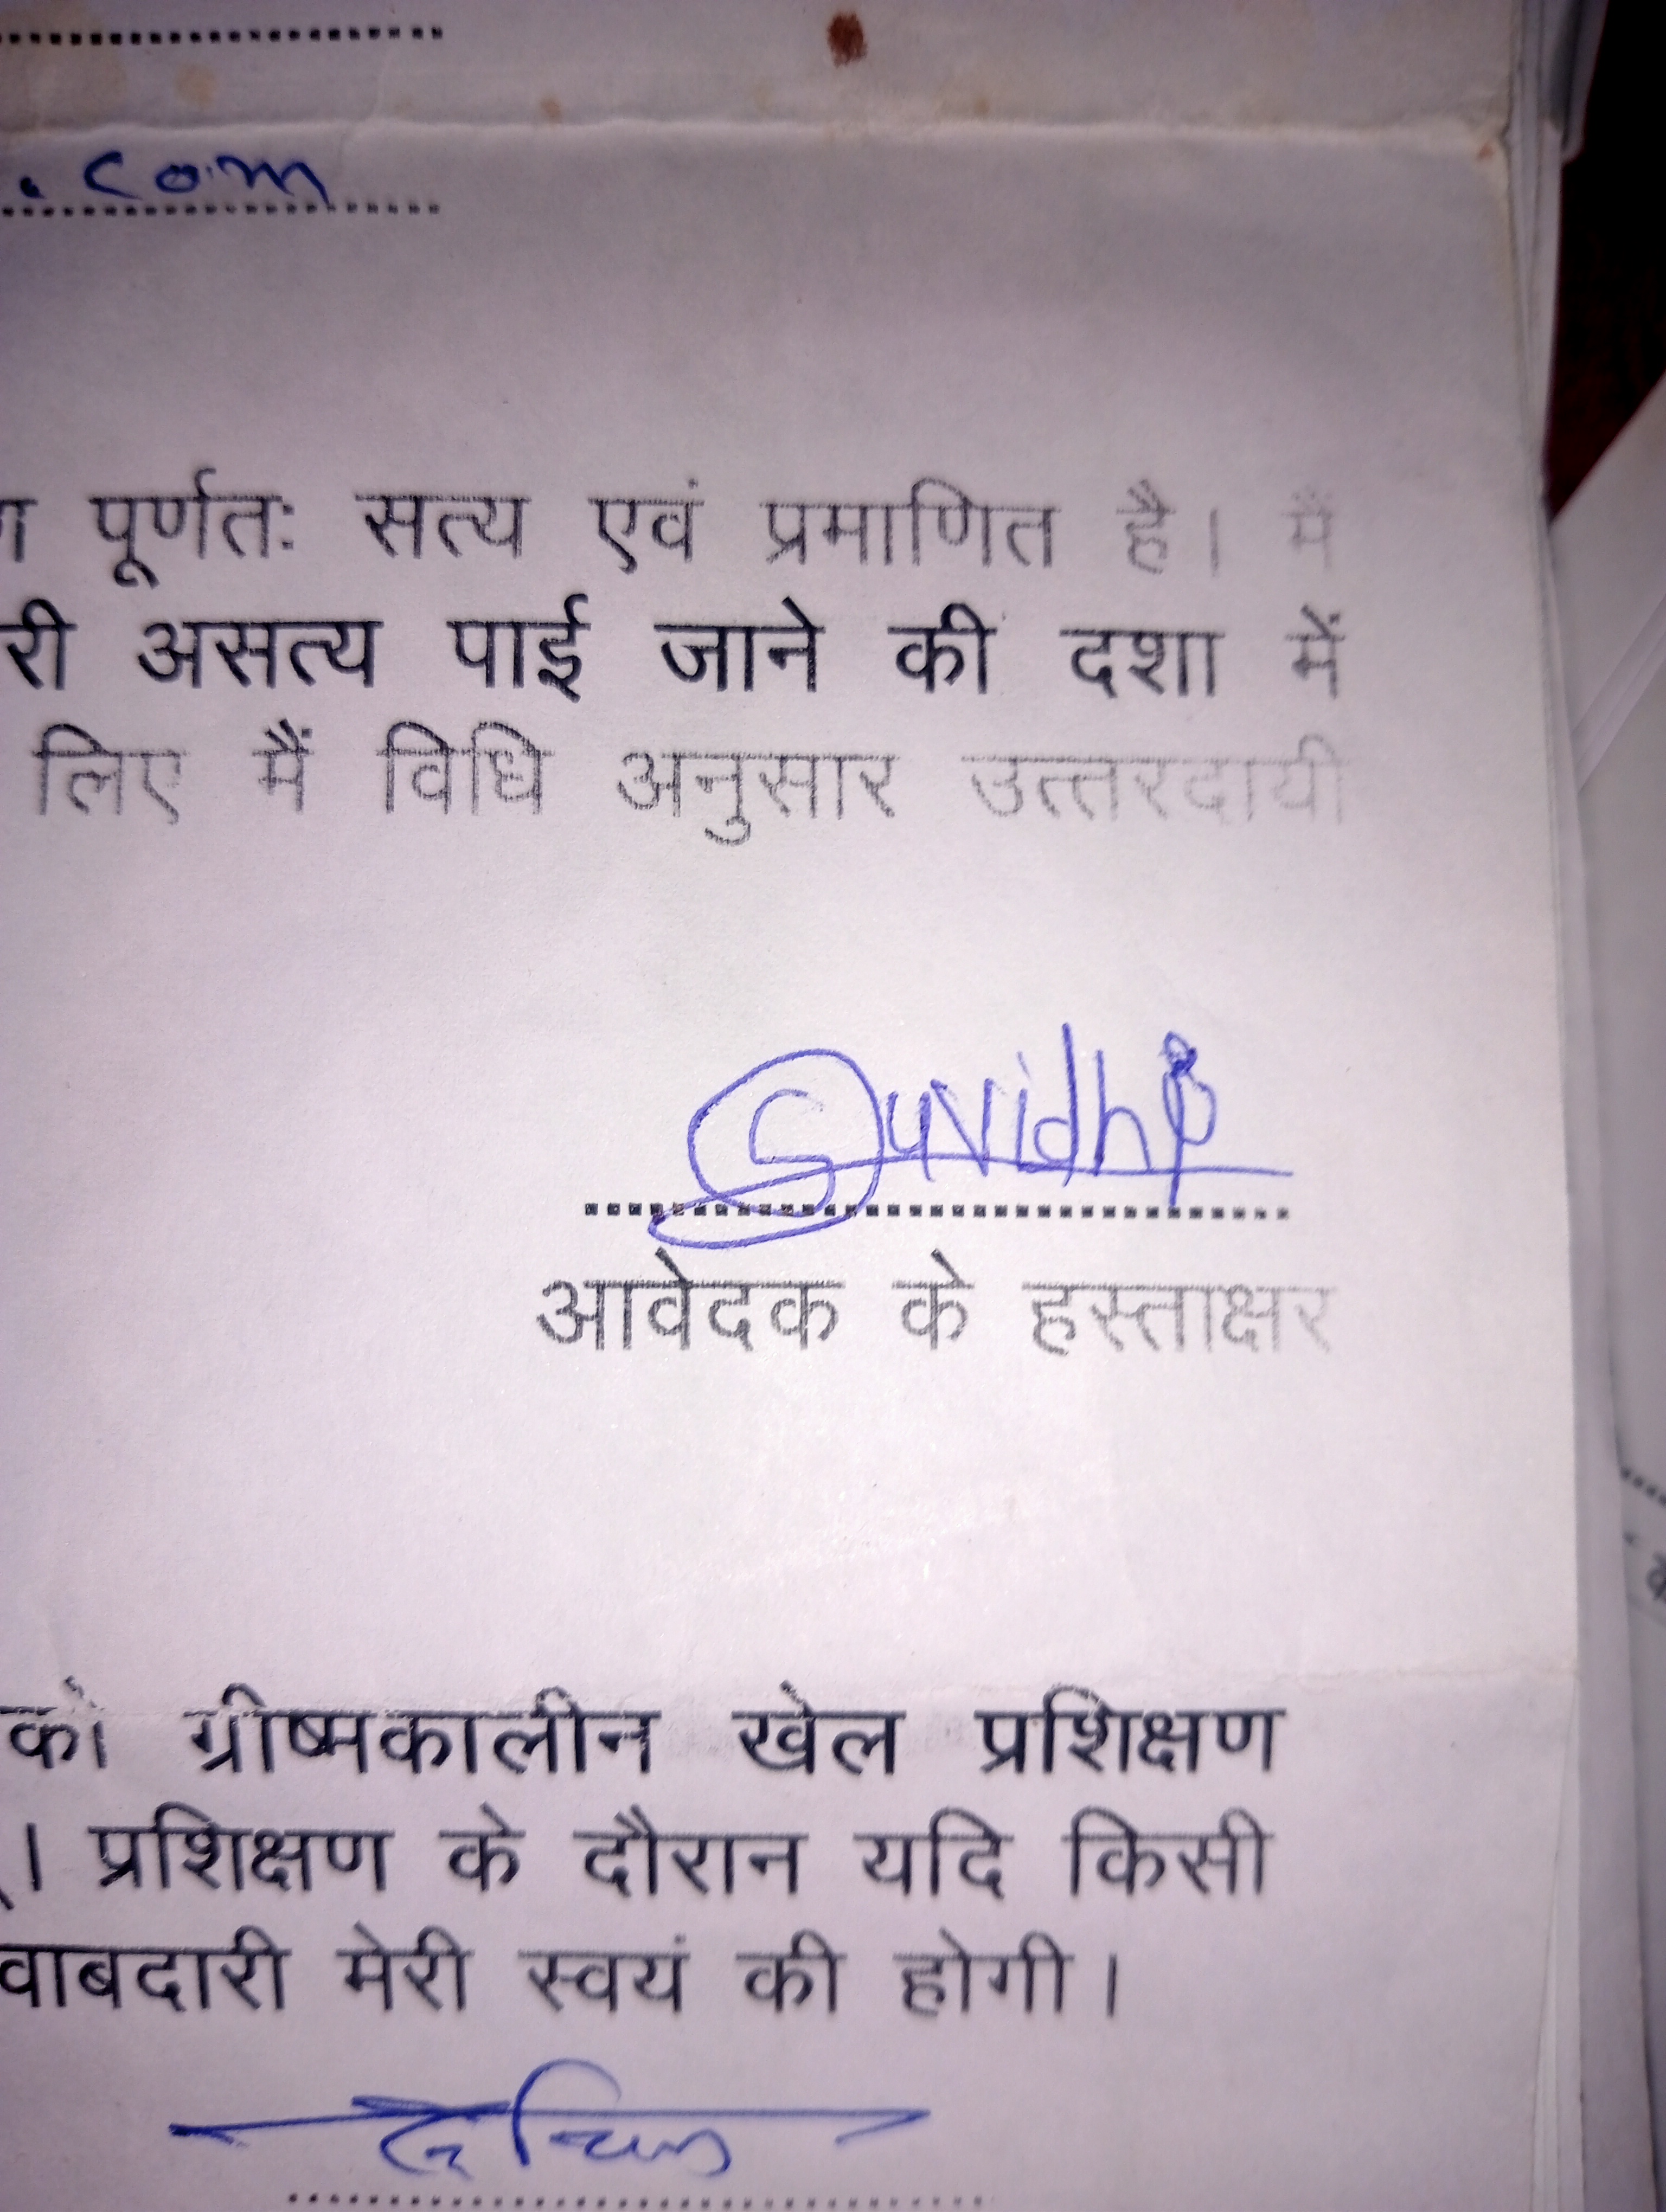 .com
पूर्णतः सत्य एवं प्रमाणित है। मैं
री असत्य पाई जाने की दशा में
लिए मैं विधि अनुसार उत्तरदायी
Suvidhi
आवेदक के हस्ताक्षर
को ग्रीष्मकालीन खेल प्रशिक्षण
। प्रशिक्षण के दौरान यदि किसी
वाबदारी मेरी स्वयं की होगी।